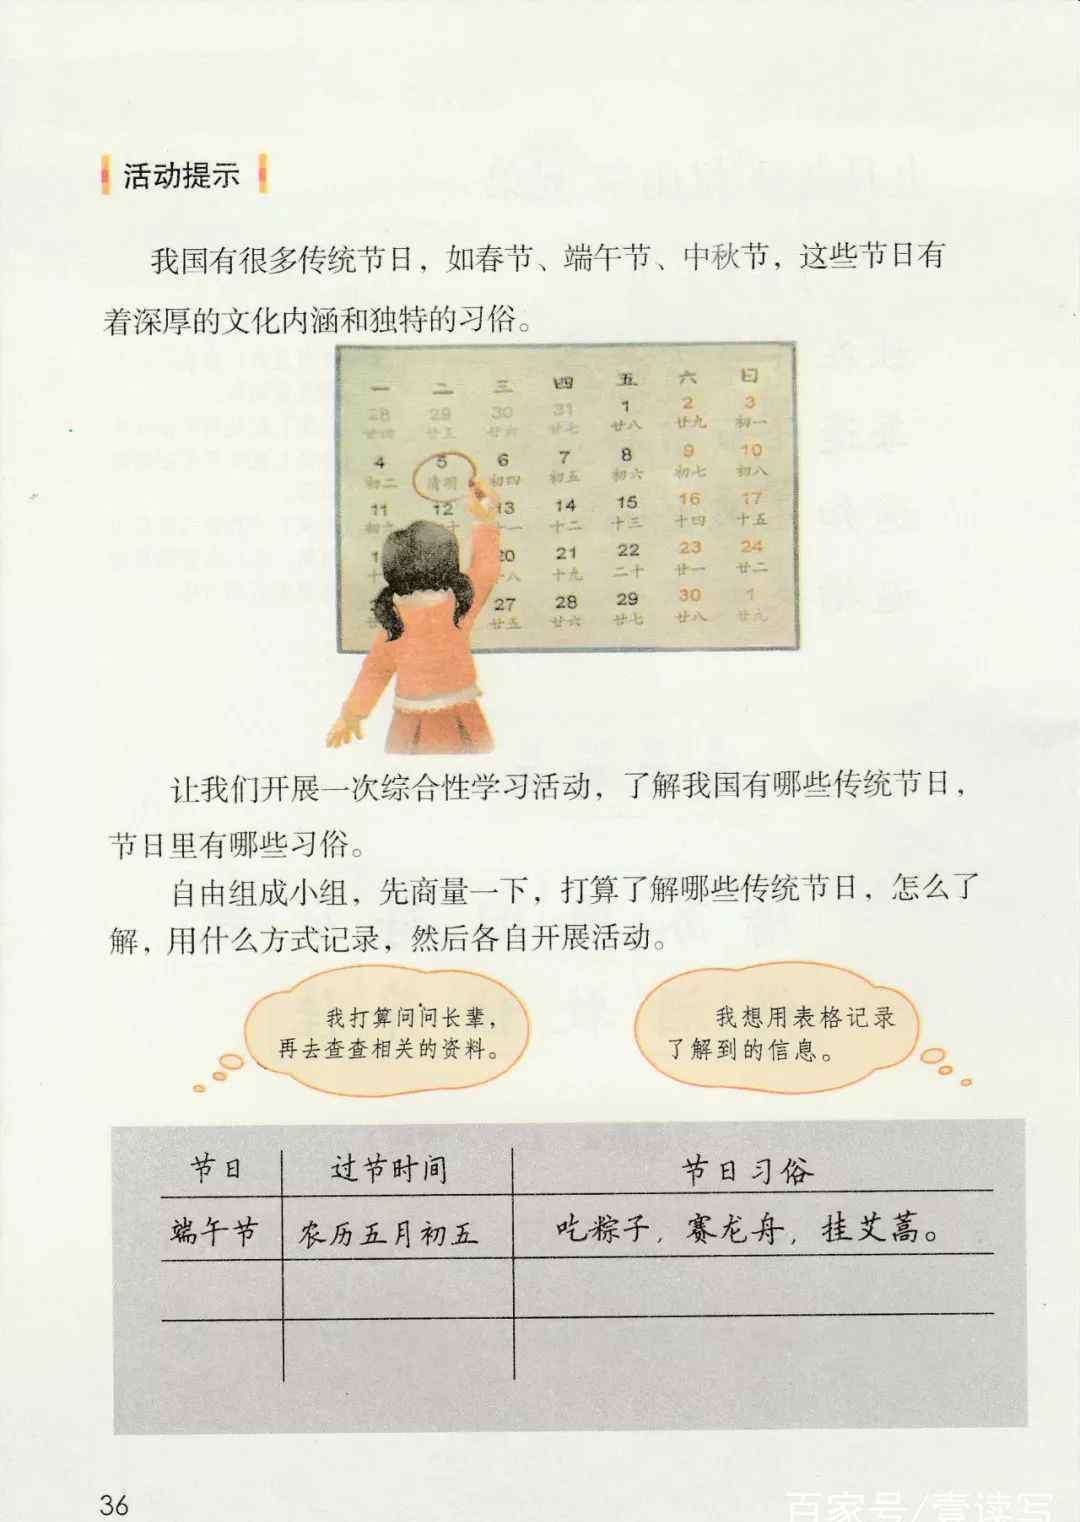 活动提示
我国有很多传统节日，如春节、端午节、中秋节，这些节日有
着深厚的文化内涵和独特的习俗。
一 二 三 四 五 六 日
28 29 30 31 1 2 3
廿四 廿五 廿六 廿七 廿八 廿九 初一
4 5 6 7 8 9 10
初二 清明 初四 初五 初六 初七 初八
11 12 13 14 15 16 17
十一 十二 十三 十四 十五
20 21 22 23 24
十九 二十 廿一 廿二
27 28 29 30 1
廿五 廿六 廿七 廿八 廿九
让我们开展一次综合性学习活动，了解我国有哪些传统节日，
节日里有哪些习俗。
自由组成小组，先商量一下，打算了解哪些传统节日，怎么了
解，用什么方式记录，然后各自开展活动。
我打算问问长辈，
再去查查相关的资料。
我想用表格记录
了解到的信息。
节日 过节时间 节日习俗
端午节 农历五月初五 吃粽子，赛龙舟，挂艾蒿。
36
百家号/壹读写